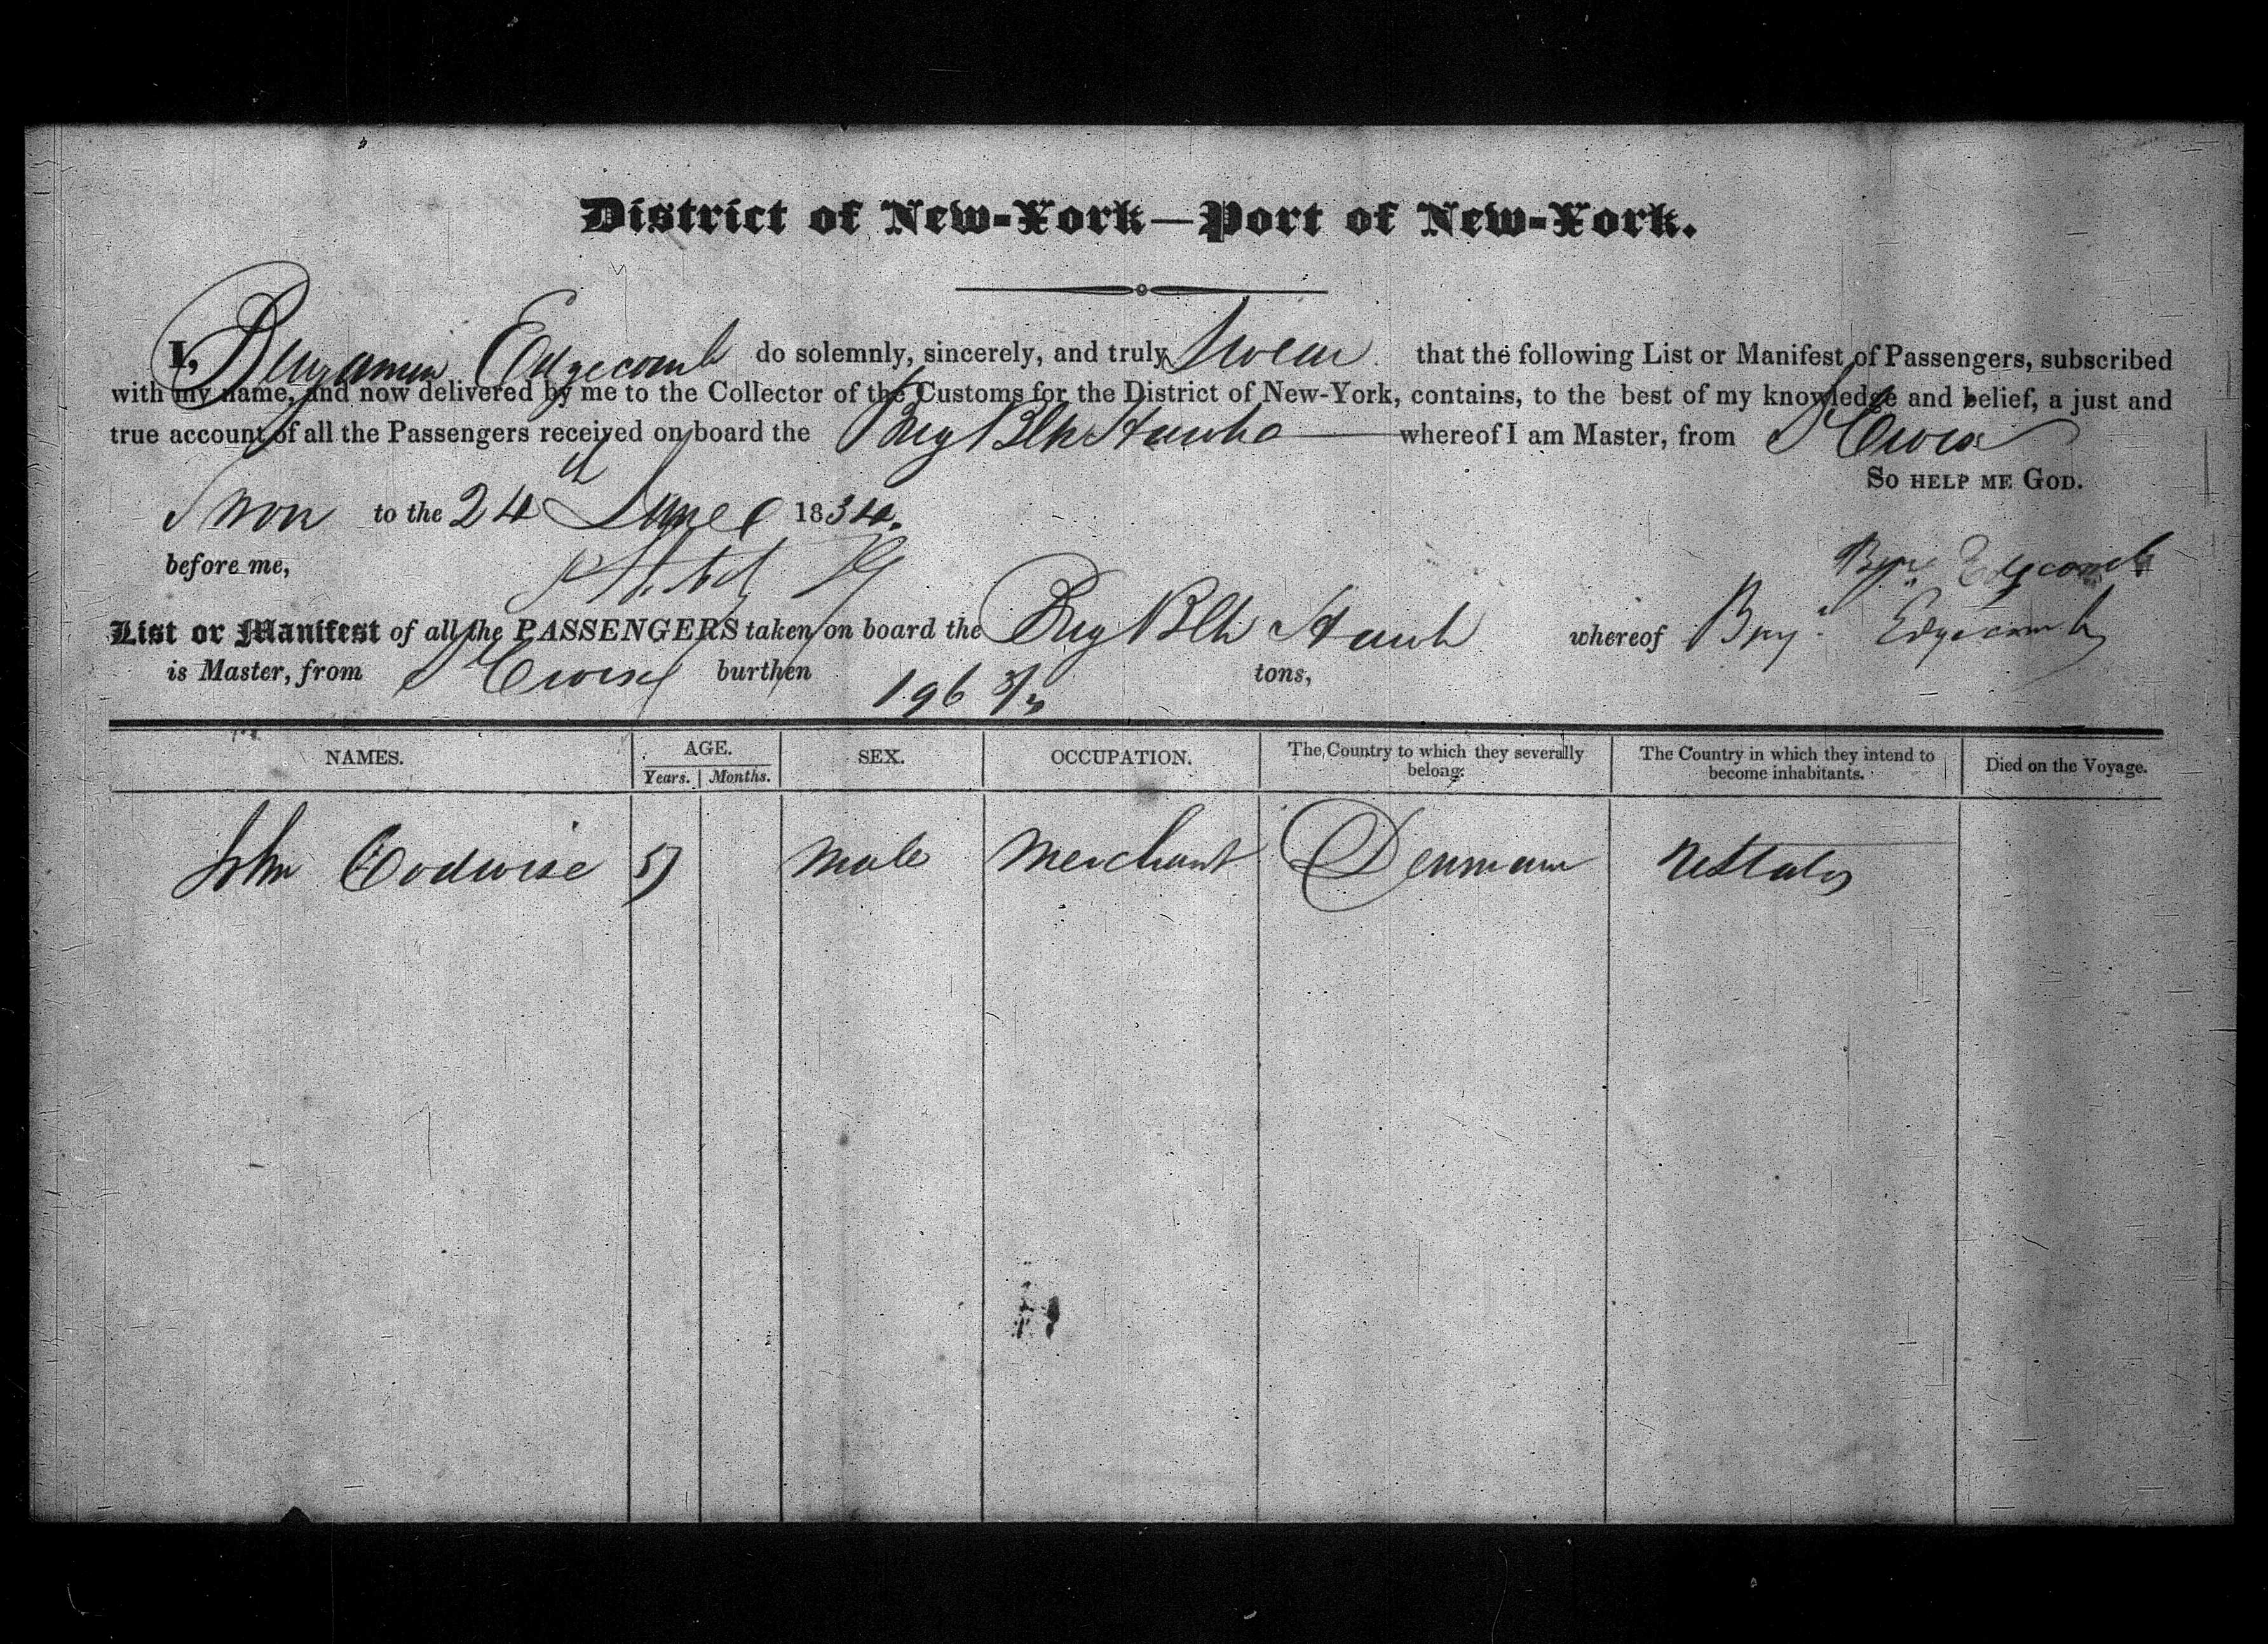 District of New-York—Port of New-York.
I, Benjamin Edgecomb do solemnly, sincerely, and truly Swear that the following List or Manifest of Passengers, subscribed
with my name, and now delivered by me to the Collector of the Customs for the District of New-York, contains, to the best of my knowledge and belief, a just and
true account of all the Passengers received on board the Brig Blk Hawk whereof I am Master, from St Croix
So help me God.
Swon to the 24th June 1834.
before me,
Benj. Edgcomb
List or Manifest of all the PASSENGERS taken on board the Brig Blk Hawk whereof Benj. Edgecomb
is Master, from St Croix burthen 196 tons,
NAMES. AGE. SEX. OCCUPATION. The Country to which they severally belong. The Country in which they intend to become inhabitants. Died on the Voyage.
Years. Months.
John Codwise 57 male merchant Denmark UStates